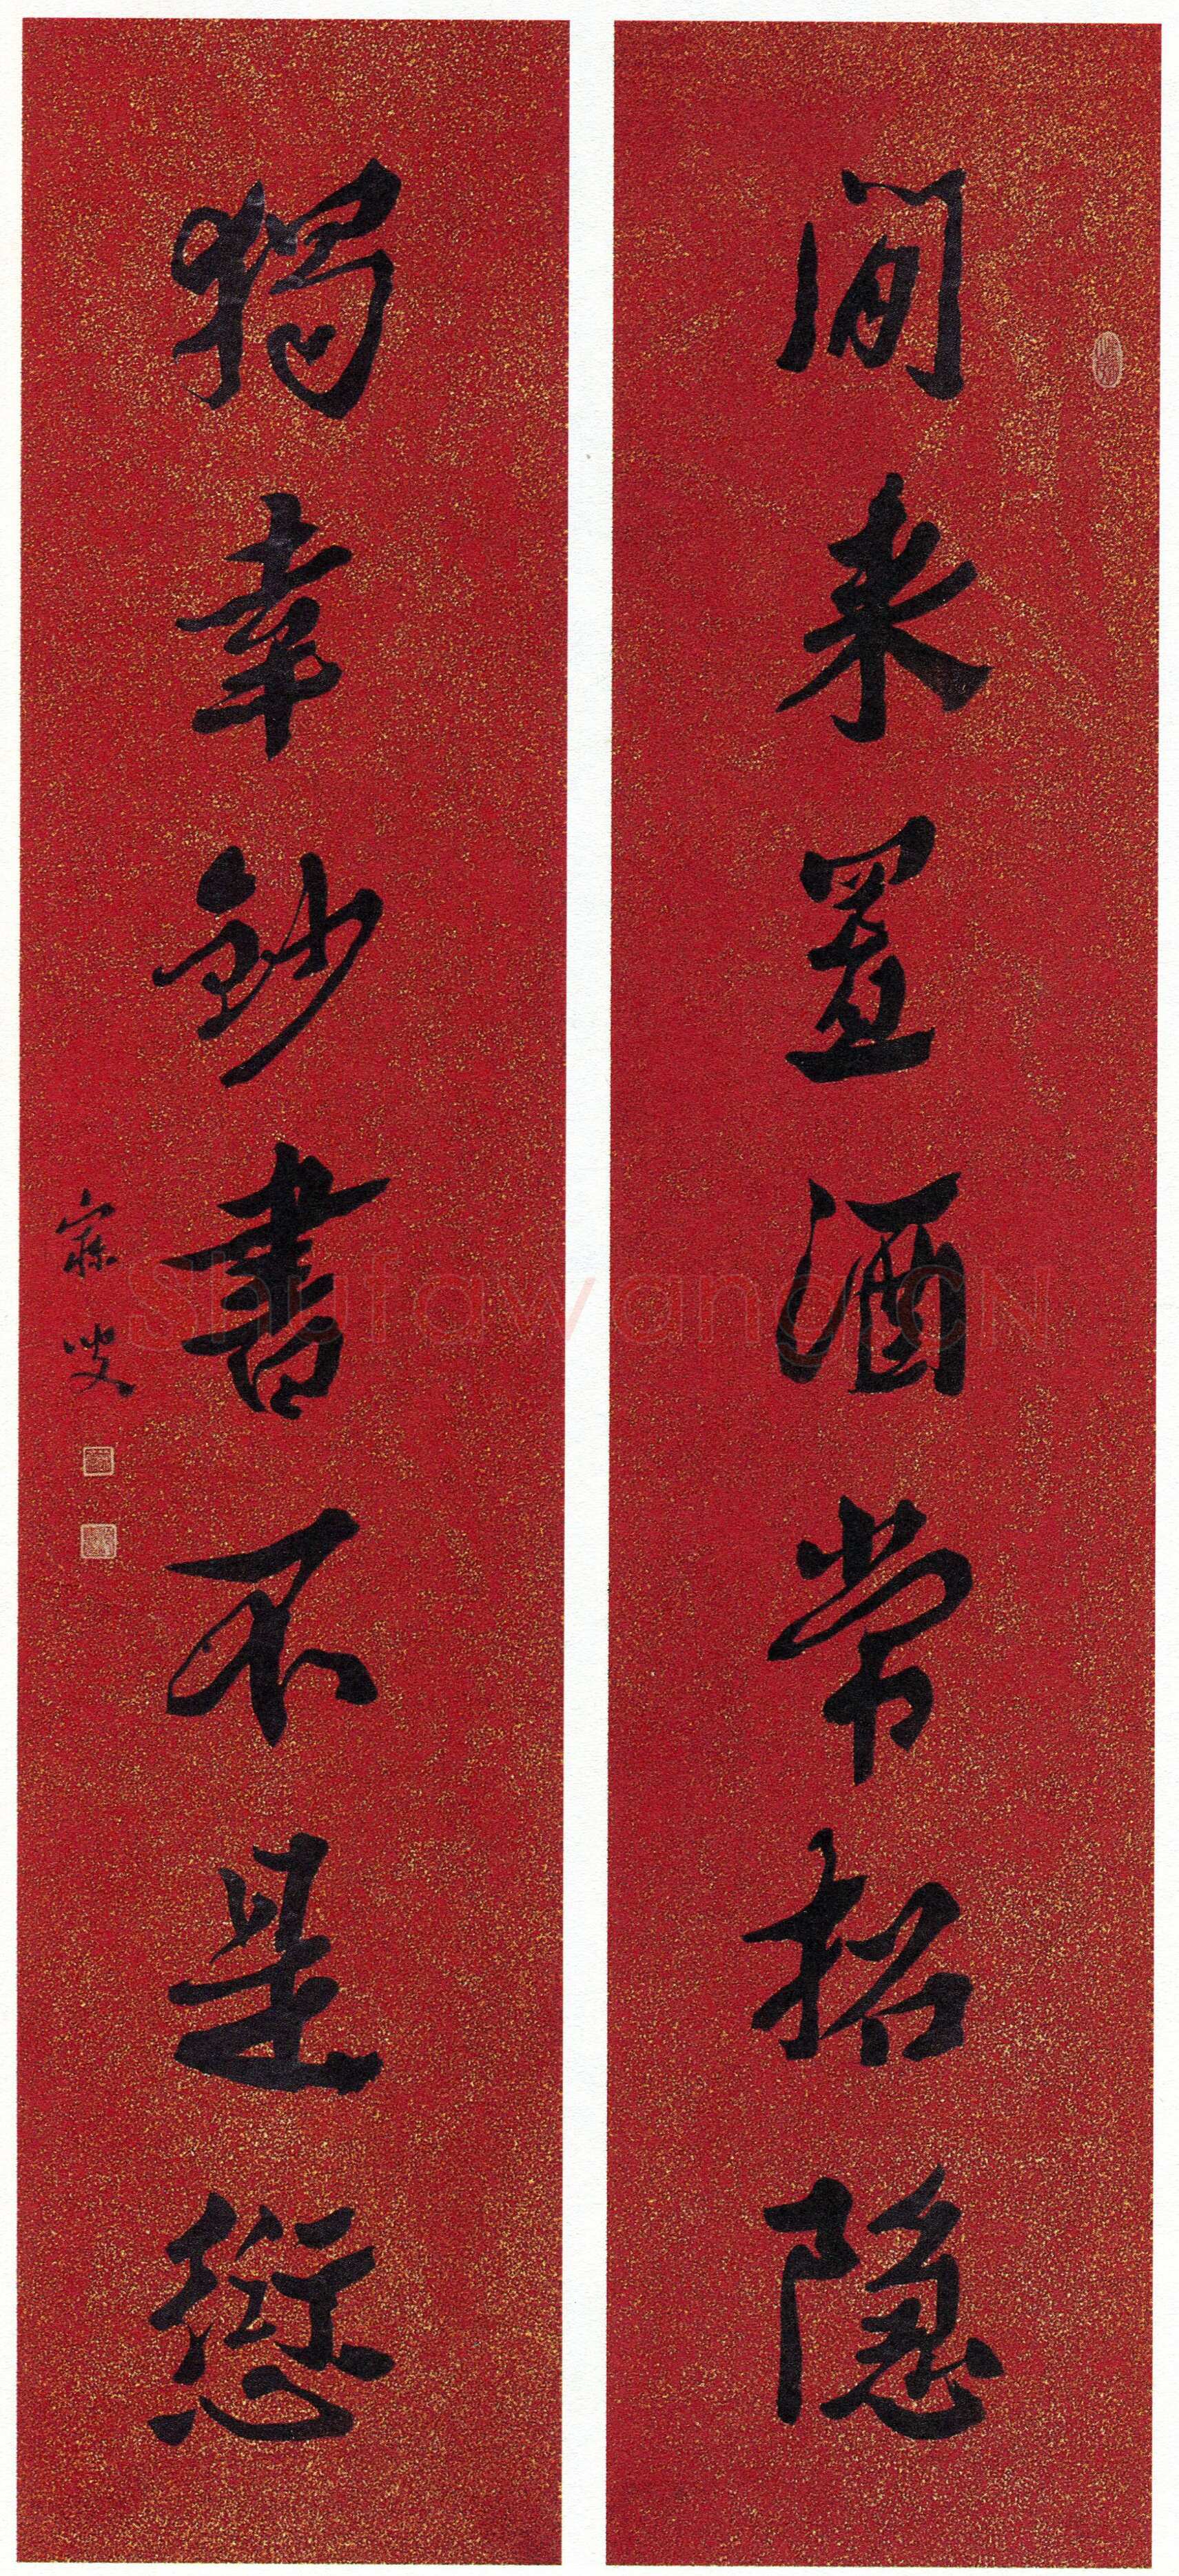 閒来置酒常招隐
獨幸鈔書不是愆
寐叟
Shufawang.CN